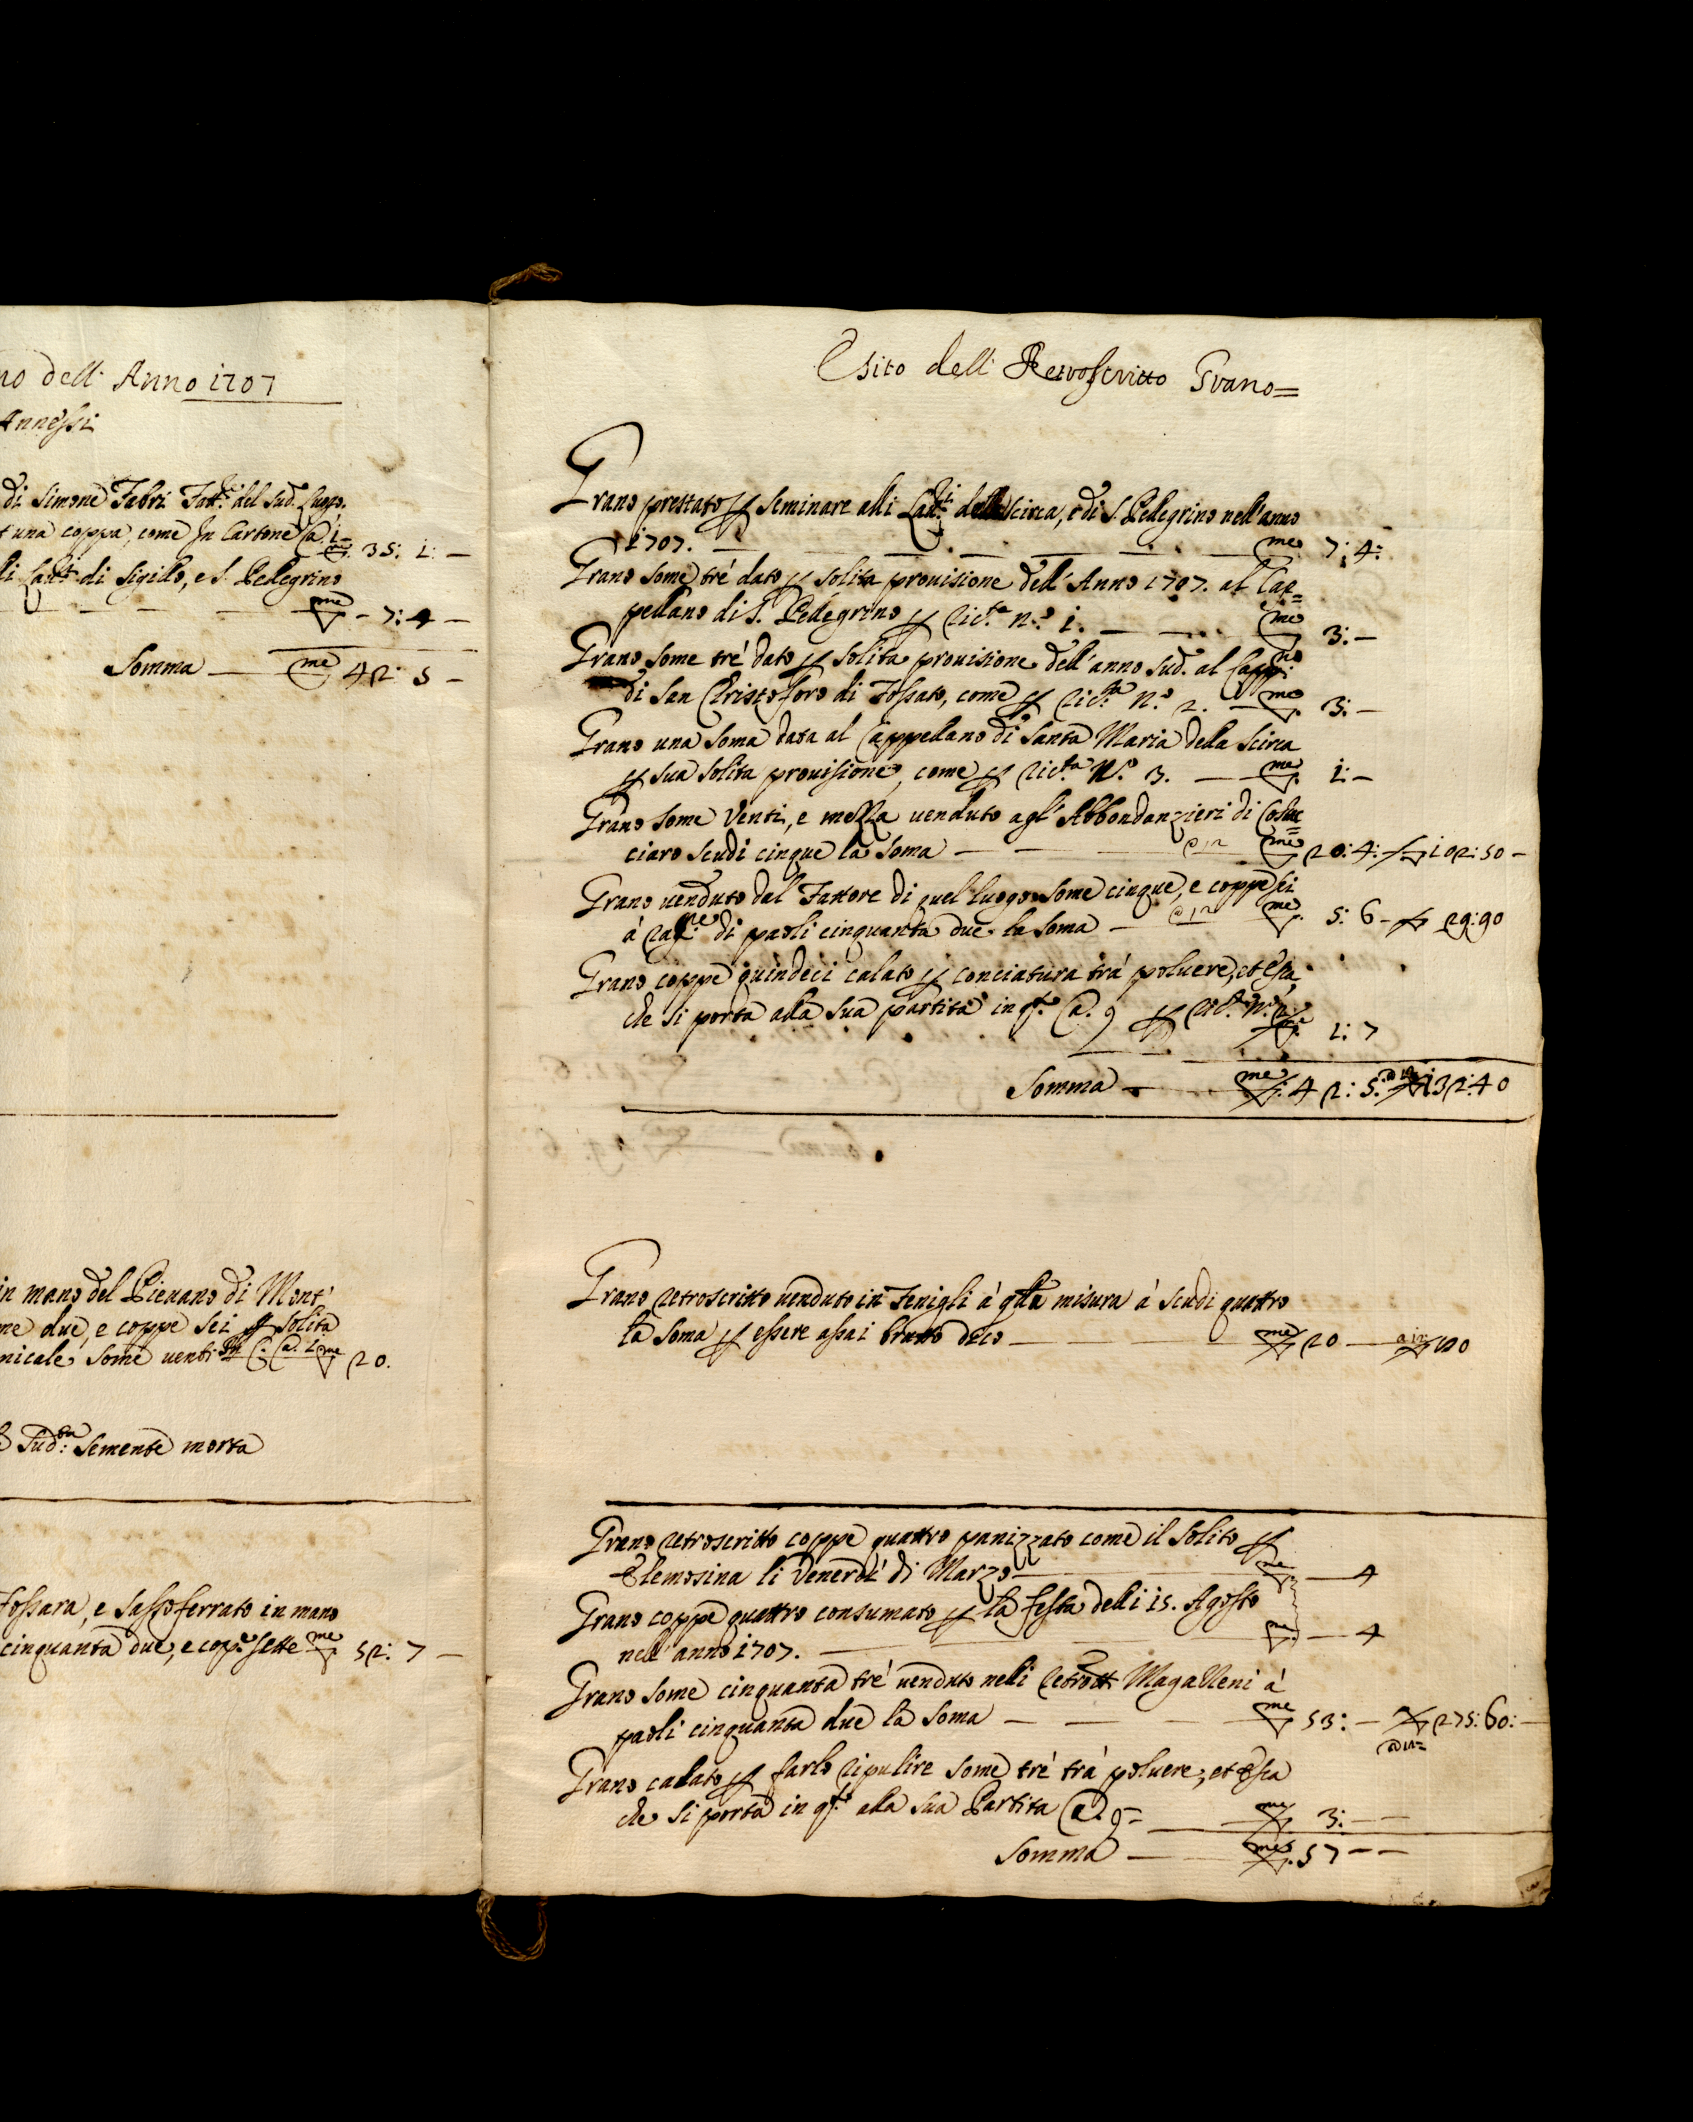 no dell' Anno 1707
Annessi
di Simone Fabri Fatt.re del sud. luogo.
t una coppa, come In Cartone Ca. 1. me 35: 1: —
li Lau.ri di Sigillo, e S. Pellegrino
— — — — me - 7: 4 —
Somma — me 42: 5 —
in mano del Pievano di Mont'
me due, e coppe sei p solita
nicale some venti Ca. 1. me 20.
Sud.ta semente morta
Fossara, e Sassoferrato in mano
cinquanta due, e copp.e sette me 52: 7 —
Esito dell' Retroscritto Grano=
Grano prestato p seminare alli Lau.ri della Scirca, e di S. Pellegrino nell'anno
1707. — — — — me 7: 4:
Grano some tré dato p solita provisione dell' Anno 1707. al Cap=
pellano di S. Pellegrino p ric.ta n.o 1. — — me 3: —
Grano some tré dato p solita provisione dell'anno sud. al Capp.no
di San Cristoforo di Fossato, come p ric.ta n.o 2. — me 3: —
Grano una soma data al Cappellano di Santa Maria della Scirca
p sua solita provisione, come p ric.ta N.o 3. — me 1: —
Grano some venti, e mezza venduto agl' Abbondanzieri di Costac=
ciaro scudi cinque la soma — — me 20: 4: 102: 50 —
Grano venduto dal Fattore di quel luogo some cinque, e coppe sei
à rag.ne di paoli cinquanta due la soma — me 5: 6 — 29: 90
Grano coppe quindeci calato p conciatura trà polvere, et esca,
che si porta alla sua partita in q.o Ca. 9 p ric.ta n.o me 1: 7
Somma — me 42: 5. 132: 40
Grano retroscritto venduto in Fenigli à q.lla misura à scudi quattro
la soma p essere assai brutto dico — me 20 — 80
Grano retroscritto coppe quattro panizzato come il solito p
Elemosina li Venerdì di Marzo — me — 4
Grano coppe quattro consumato p la festa delli 15. Agosto
nell' anno 1707. — me — 4
Grano some cinquanta tré venduto nelli retrotti Magazzeni à
paoli cinquanta due la soma — — me 53: — 275: 60: —
Grano calato p farlo ripulire some tré trà polvere, et esca
che si porta in q.o alla sua Partita Ca. 9= me 3: —
Somma — me. 57 — —